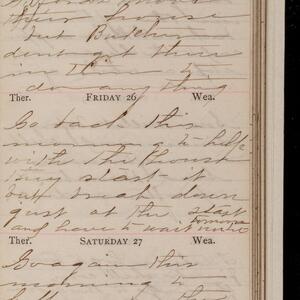 their house
but Butcher
dont get there
in to
do any thing
Ther. FRIDAY 26 Wea.
Go back this
morning to help
with the house
they start it
but break down
gust at the start
and have to wait untill tomorrow
Ther. SATURDAY 27 Wea.
Go again this
morning to